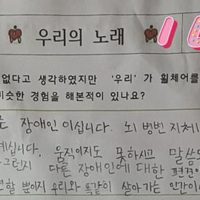 우리의 노래
없다고 생각하였지만 '우리'가 휠체어를
비슷한 경험을 해본적이 있나요?
장애인 이십니다. 뇌 병변 지체
계십니다. 움직이지도 못하시고 말씀도
다른 장애인에 대한 편견이
뿐이지 우리와 똑같이 살아가는 인간이